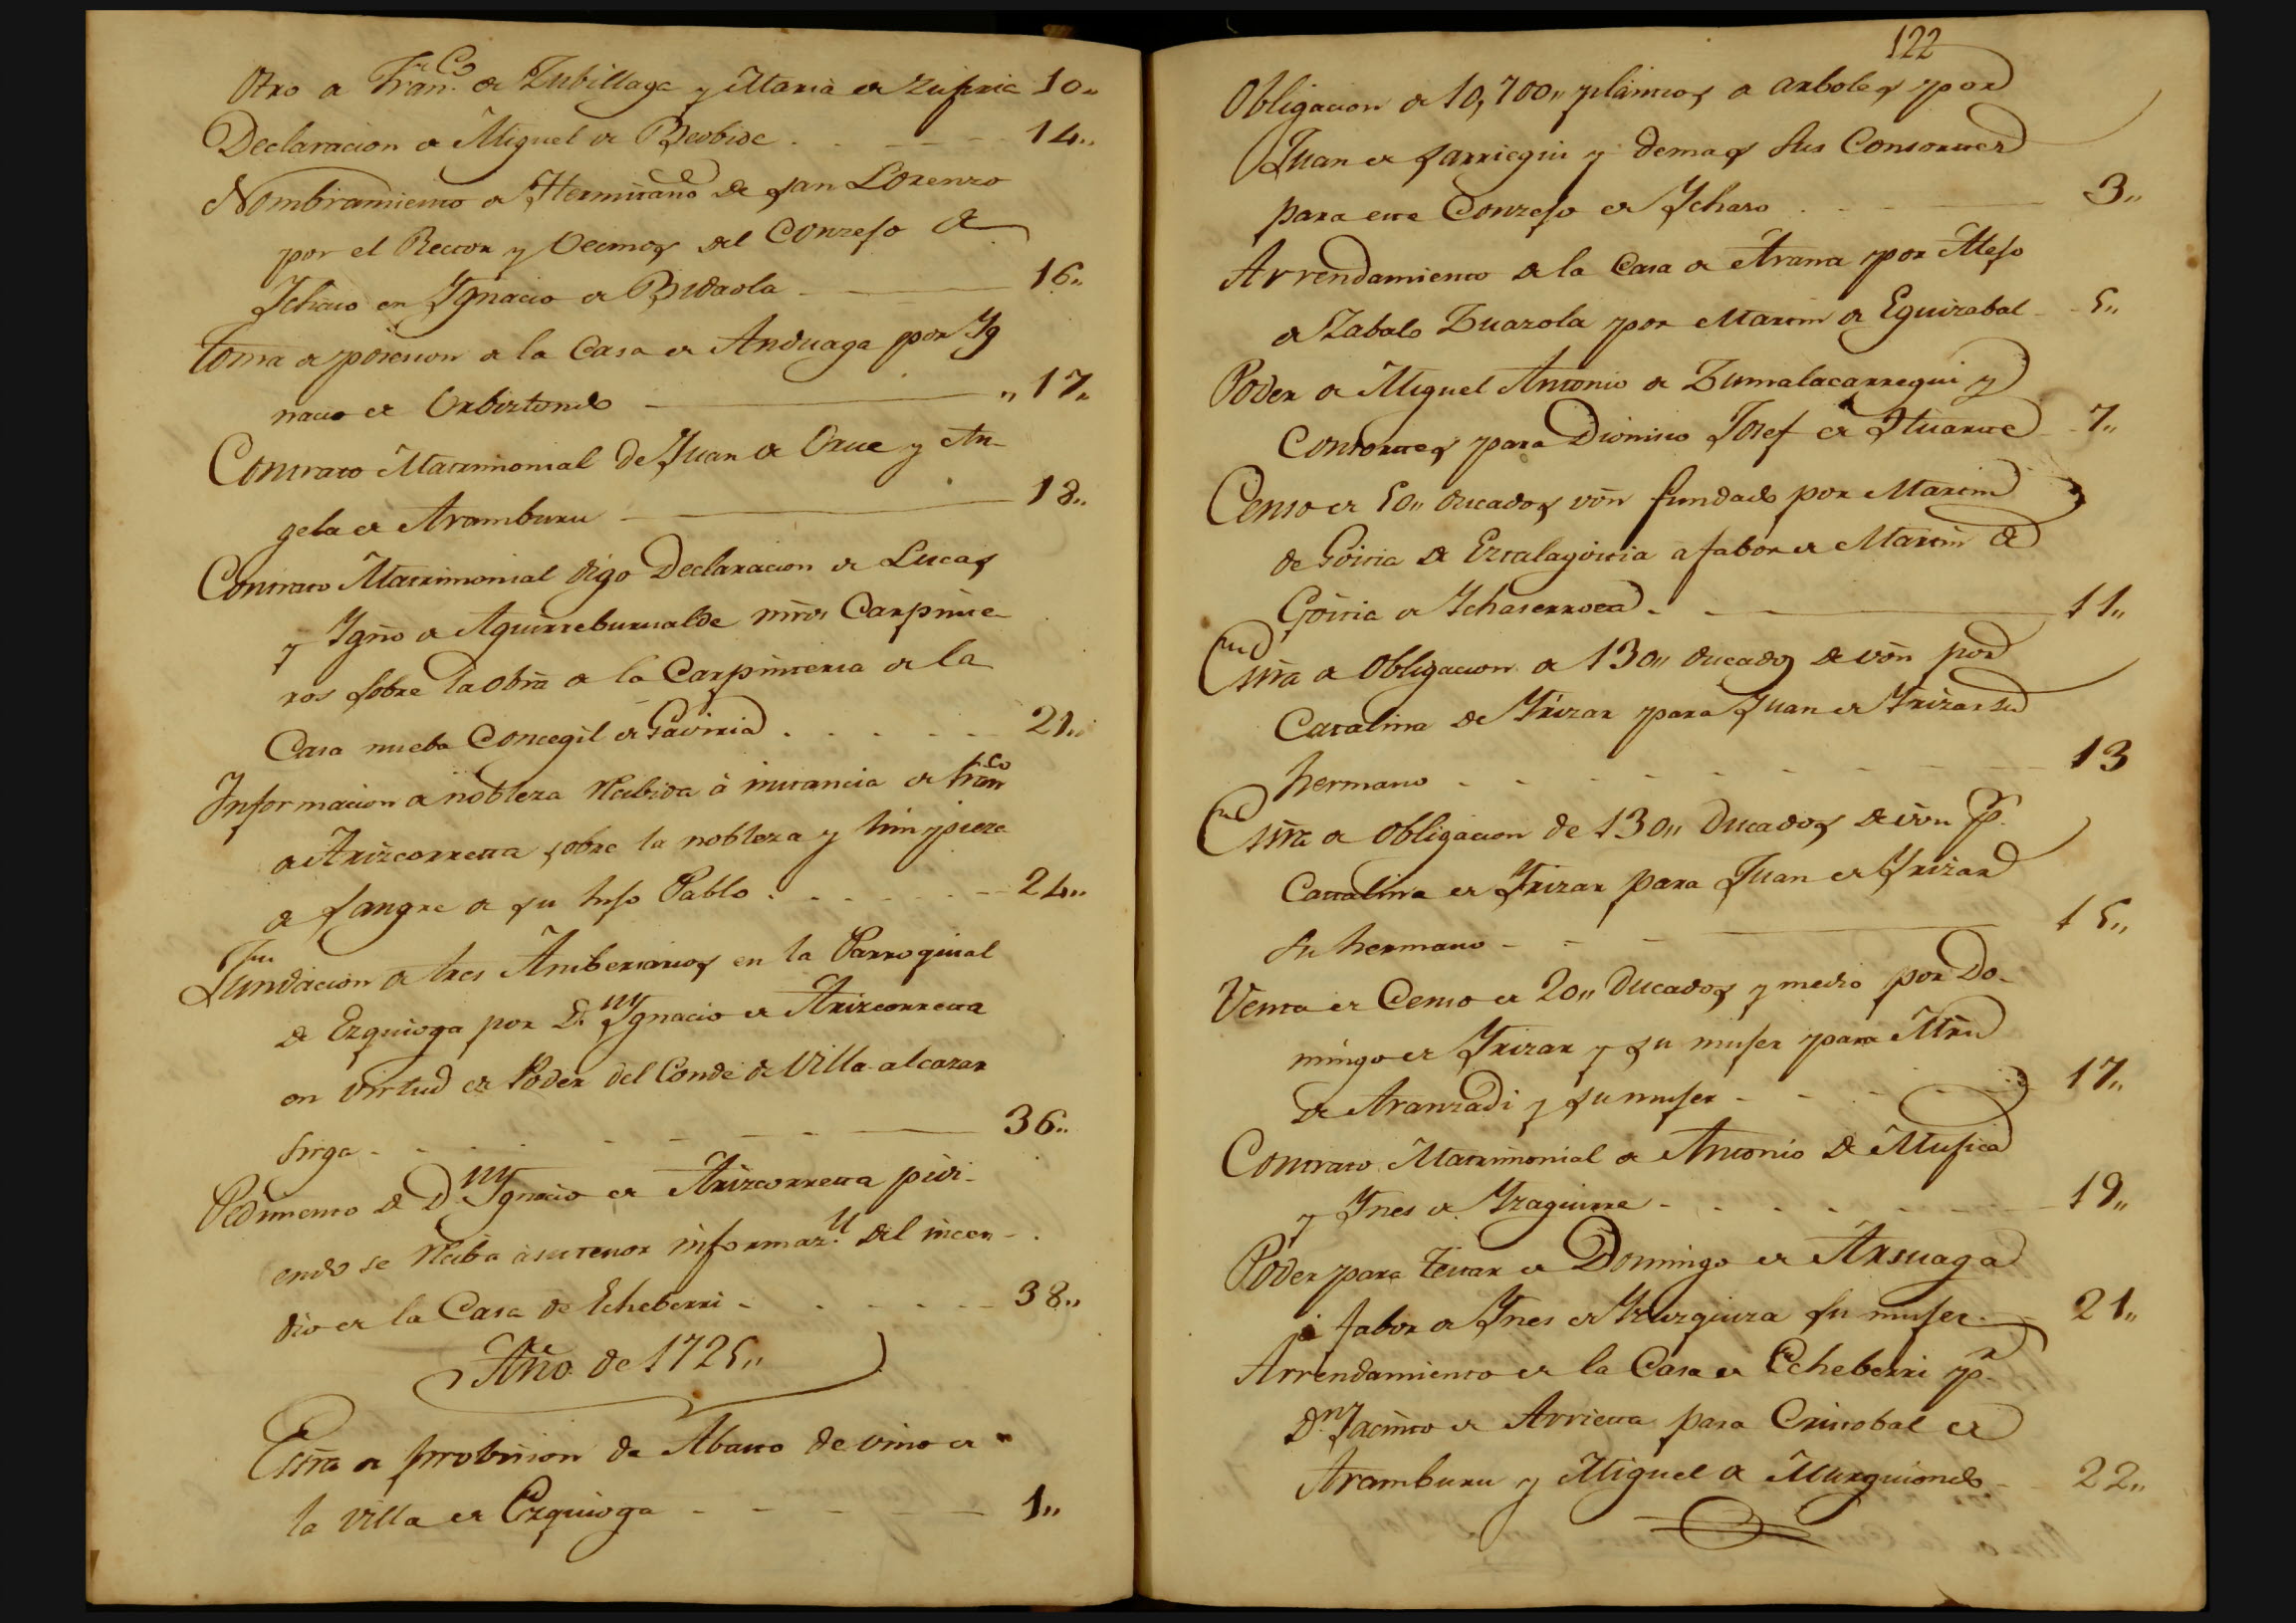 Otro de Fran.co de Zubillaga y Maria de Zufiria 10,,
Declaracion de Miguel de Beobide . . . . 14,,
Nombramiento de Hermitaño de San Lorenzo
por el Rector y Vecinos del Conzejo de
Ichaso en Ygnacio de Bidaola - 16,,
Toma de posesion de la Casa de Anduaga por Yg
nacio de Orbiztondo ,, 17,,
Contrato Matrimonial de Juan de Orue y An-
gela de Aramburu 18,,
Contrato Matrimonial digo Declaracion de Lucas
y Ygno de Aguirreburualde mros Carpinte
ros sobre la obra de la Carpinteria de la
Casa nueba Concegil de Gaviria . . . . 21,,
Informacion de nobleza recibida à instancia de Franco
de Arizcorreta sobre la nobleza y limpieza
de sangre de su hijo Pablo . . . . 24,,
Fundacion de tres Anibersarios en la Parroquial
de Ezquioga por D.n Ygnacio de Arizcorreta
en virtud de Poder del Conde de Villa-alcazar
Sirga - - - - 36,,
Pedimento de D.n Ygnacio de Arizcorreta pidi-
endo se reciba à su tenor informaz.n del incen-
dio de la Casa de Echeberri - . . . 38,,
Año de 1725,,
Essra de probision de Abasto de vino de
la Villa de Ezquioga - - - - 1,,
122
Obligacion de 10,700,, plantios de arboles por
Juan de Sarriegui y demas sus Consortes
para este Conzejo de Ichaso . - 3,,
Arrendamiento de la Casa de Arana por
de Zabalo Zuazola por Martin de Eguizabal - 5,,
Poder de Miguel Antonio de Zumalacarregui y
Consortes para Dionisio Josef de Ituarte - 7,,
Censo de 50,, ducados von fundado por Martin
de Goitia de Ezcalagoitia à fabor de Martin de
Goitia de Ichaserrota - - 11,,
Essra de Obligacion de 130,, ducados de von por
Catalina de Yrizar para Juan de Yrizar su
hermano - - - - 13
Essra de Obligacion de 130,, Ducados de von p.
Catalina de Yrizar para Juan de Yrizar
su hermano - - - 15,,
Venta de Censo de 20,, Ducados y medio por Do-
mingo de Yrizar y su mujer para Mrn
de Aranzadi y su mujer - - - 17,,
Contrato Matrimonial de Antonio de Mujica
y Ynes de Yzaguirre - . . . 19,,
Poder para testar de Domingo de Arsuaga
à fabor de Ynes de su mujer - 21,,
Arrendamiento de la Casa de Echeberri p.r
D.n Jacinto de Arrieta para Cristobal de
Aramburu y Miguel de Murguiondo - 22,,